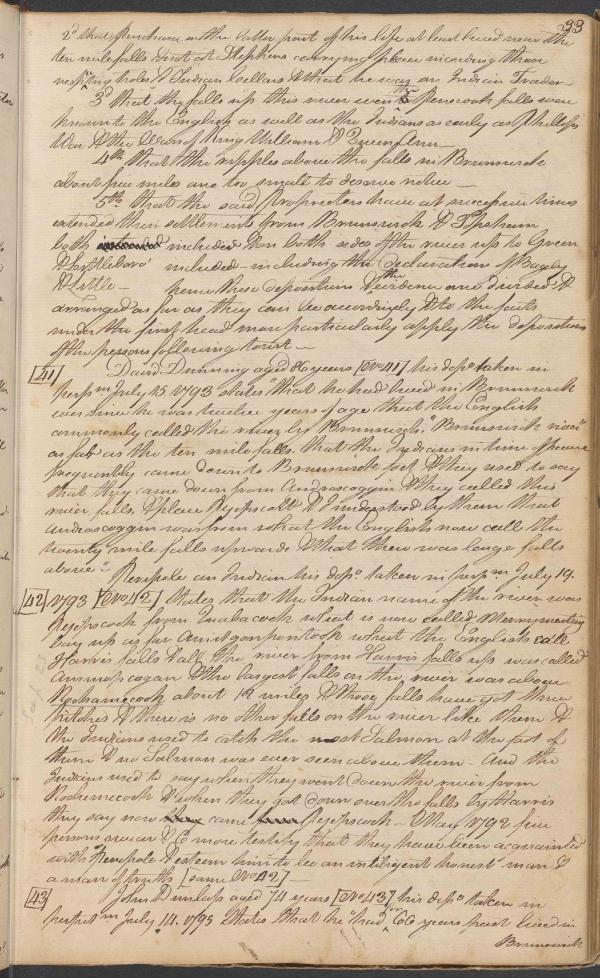 33
2d that Purchase in the latter part of his life at least lived near the
ten mile falls & not at Stephens carrying place viz.
holes & Indian Cellars & that he was an Indian Trader
3d that the falls up this river even to Pejepscook falls were
known to the English as well as the Indians as early as Phillips
War & the Wars of King William & Queen Ann
4th that the ripples above the falls in Brunswick
about five miles are too small to deserve notice
5th that the said Proprietors have at successive times
extended their settlements from Brunswick & Topsham
both included on both sides of the river up to Green
& Littleboro' included—including the Declaration of Bagley
& Little — hence these depositions & the evidence are divided &
arranged as far as they can be accordingly & to the facts
under the first head more particularly apply the depositions
of the persons following to wit—
[41] David Dunning aged 86 years [No 41] his depo taken in
perpm July 15. 1793 states "that he had lived in Brunswick
ever since he was twelve years of age that the English
commonly called the river by Brunswick, "Brunswick river"
as far as the ten mile falls. that the Indians in time of peace
frequently came down to Brunswick fort & they used to say
that they came down from Androscoggin & they called this
river falls & place Pejepscott & I understood by them that
Androscoggin was from what the English now call the
twenty mile falls upwards & that there was large falls
above"— Perepole an Indian his depo taken in perpm July 19.
[42] 1793 [No 42] States that the Indian name of the river was
Pejepscook from Quabacook what is now called Merrymeeting
bay up as far Amitgonpontook what the English call
Harris falls & all the river from Harris falls up was called
Ammoscogan & the largest falls on the river was above
Rockamecook about 12 miles & those falls have got three
pitches & there is no other falls on the river like them &
the Indians used to catch the most Salmon at the foot of
them & no Salmon was ever seen above them— And the
Indians used to say when they went down the river from
Rockamecook & when they got down over the falls by Harris
they say now came Pejepscook— May 1792 five
persons & more testify that they have been acquainted
with Perepole & esteem him to be an intelligent honest man &
a man of truth [same No 42]
[43] John Dunlap aged 74 years [No 43] his depo taken in
perpet m July 14. 1793 States that he had for 66 years past lived in
Brunswick